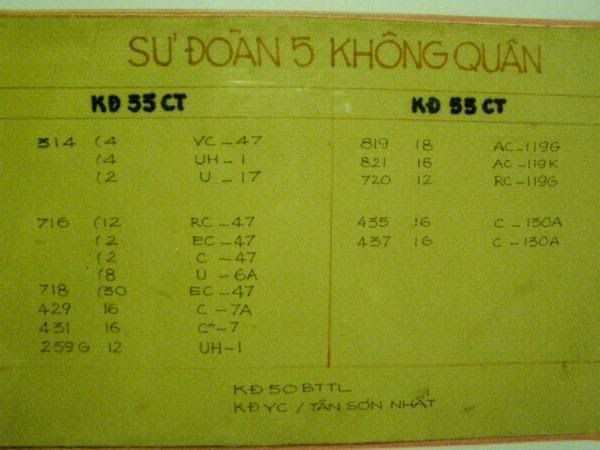 SƯ ĐOÀN 5 KHÔNG QUÂN
KĐ 33 CT
314 (4 VC-47
(4 UH-1
(2 U-17
716 (12 RC-47
(2 EC-47
(2 C-47
(8 U-6A
718 (30 EC-47
429 16 C-7A
431 16 C-7
259G 12 UH-1
KĐ 53 CT
819 18 AC-119G
821 18 AC-119K
720 12 RC-119G
435 16 C-130A
437 16 C-130A
KĐ 50 BTTL
KĐ YC / TÂN SƠN NHẤT